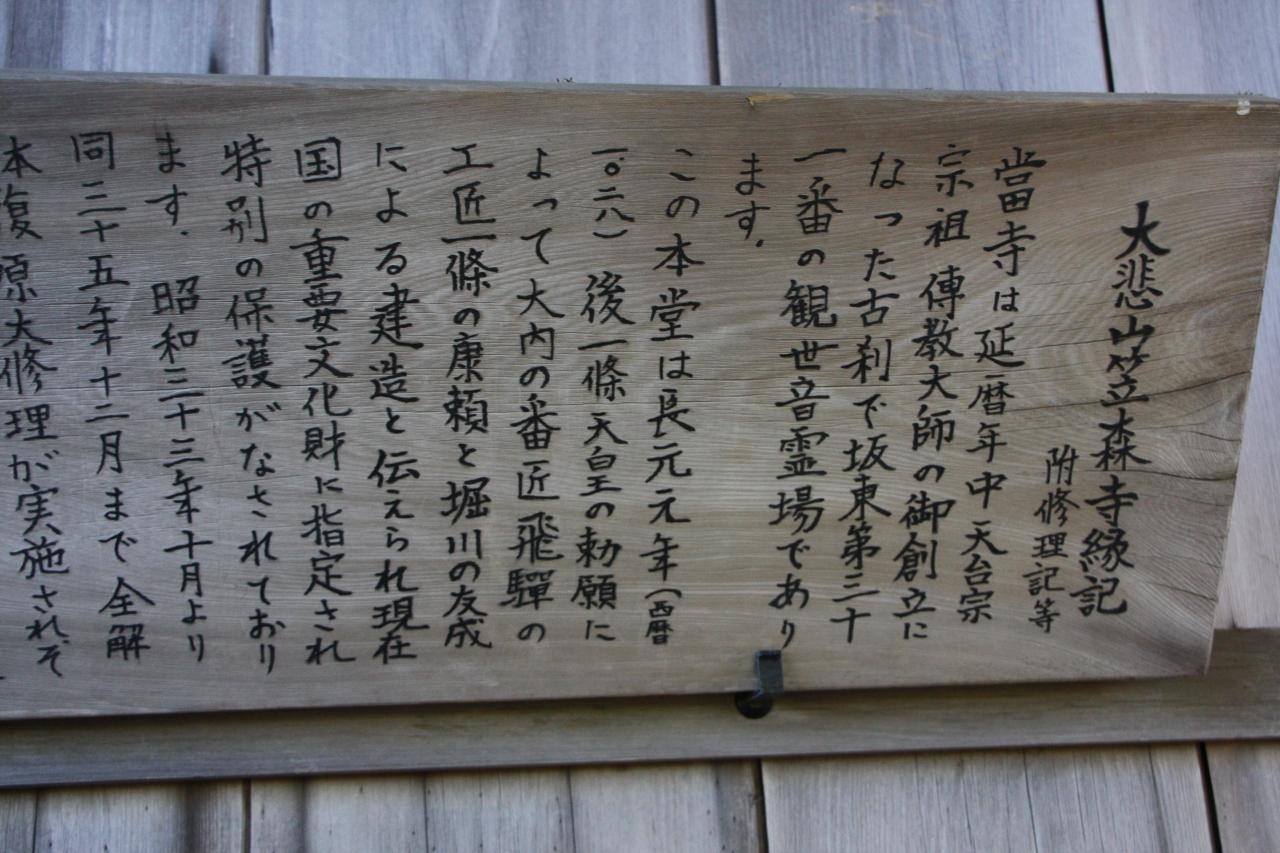 大悲山笠森寺縁記
附修理記等
當寺は延暦年中天台宗
宗祖傳教大師の御創立に
なった古刹で坂東第三十
一番の観世音霊場であり
ます．
この本堂は長元元年（西暦
一〇二八）後一條天皇の勅願に
よって大内の番匠飛騨の
工匠一條の康頼と堀川の友成
による建造と伝えられ現在
国の重要文化財に指定され
特別の保護がなされており
ます．昭和三十三年十月より
同三十五年十二月まで全解
本復原大修理が実施されそ